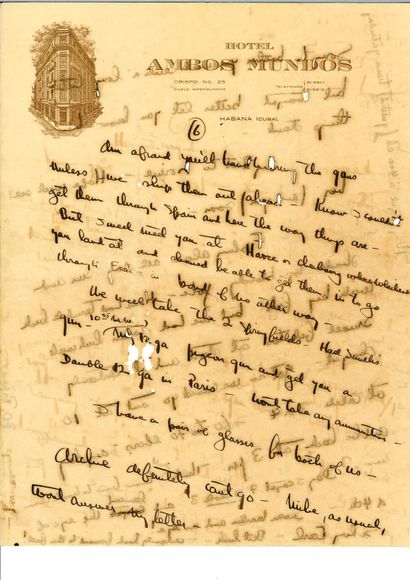 HOTEL
AMBOS MUNDOS
OBISPO NO. 25
HABANA (CUBA)
6
Am afraid you'll have bring the guns
unless we ship them out ahead. Know I couldn't
get them through Spain and here the way things are —
But I could meet you at Havre or cherbourg when
you land at and should be able to get them in to go
through in bond if no other way —
We will take the 2 Springfields — Had Smith's
gun — 10 3/4 m.m. My 12 ga pigeon gun and get you a
Double 12 ga in Paris — Wont take any ammunition —
I have a pair of glasses for both of us —
Archie definitely cant go — Mike, as usual,
wont answer my letter —